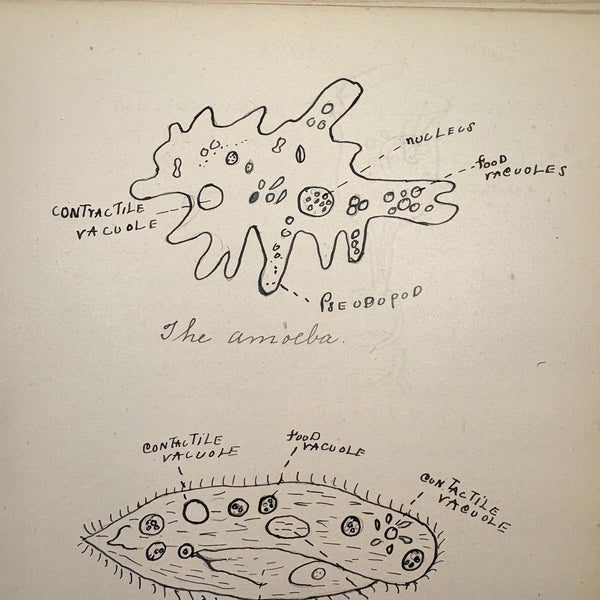 nucleus
food
vacuoles
contractile
vacuole
Pseudopod
The amoeba.
contactile
vacuole
food
vacuole
contactile
vacuole